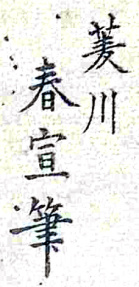 菱川
春宣筆